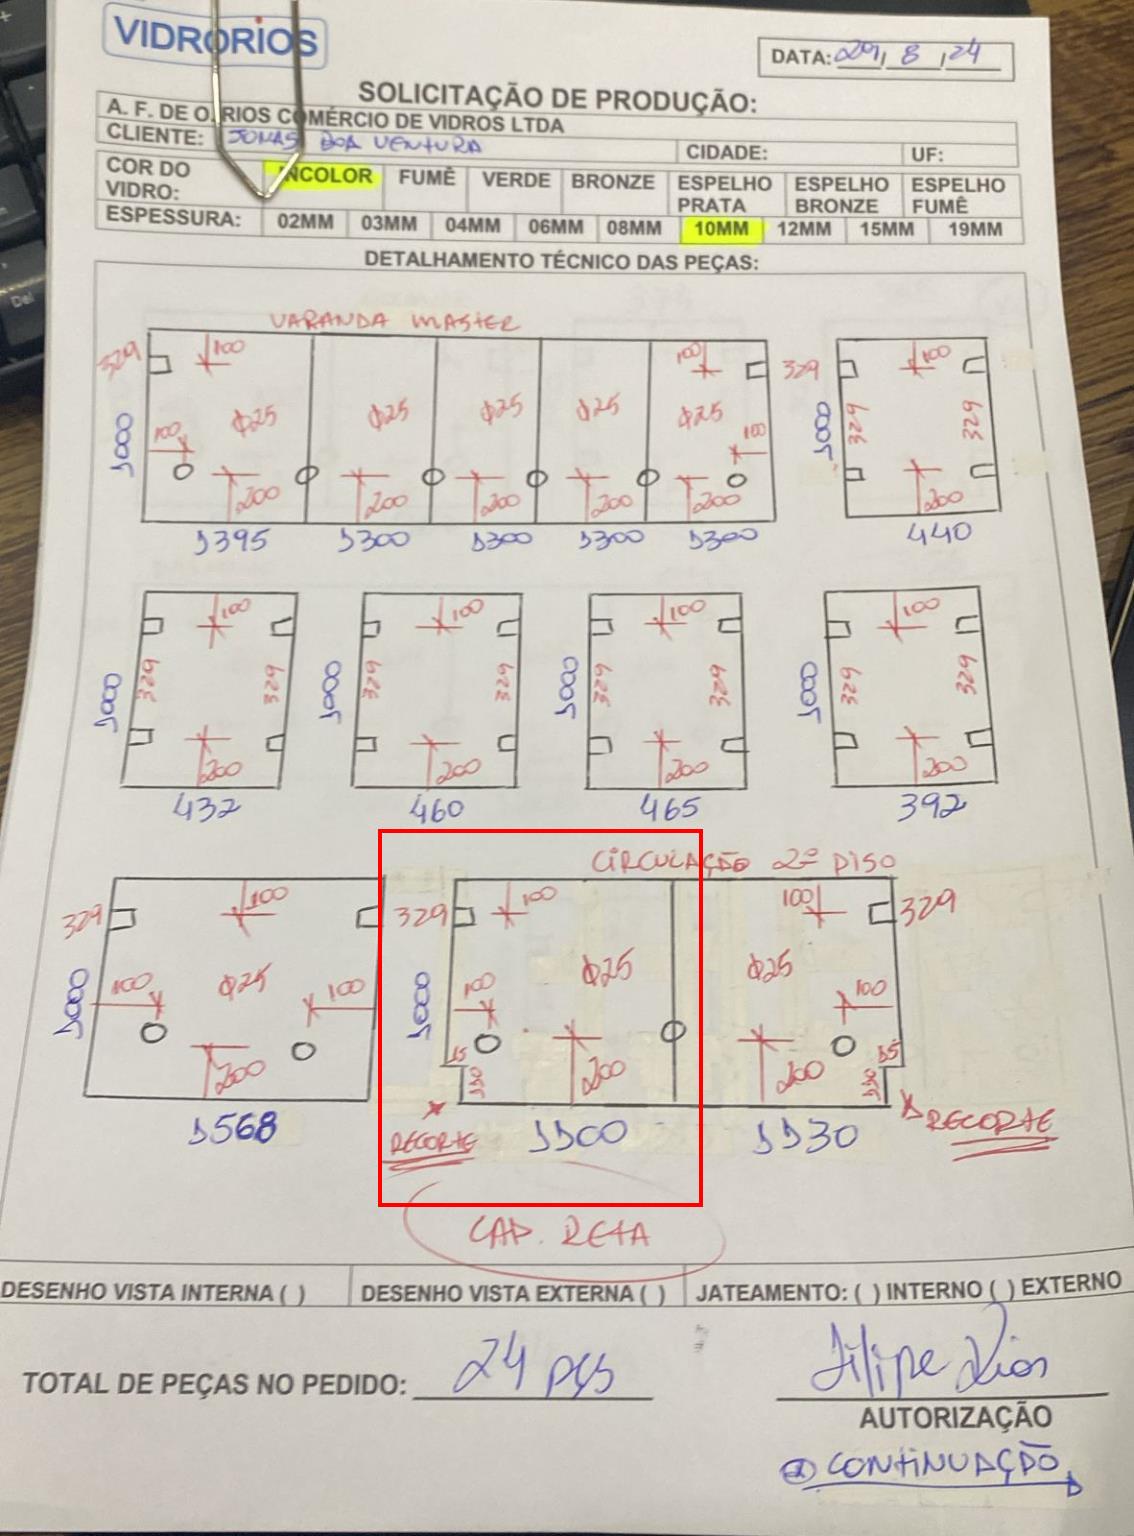 VIDRORIOS
DATA: 29/8/24
SOLICITAÇÃO DE PRODUÇÃO:
A. F. DE O. RIOS COMÉRCIO DE VIDROS LTDA
CLIENTE: JONAS BOA VENTURA CIDADE: UF:
COR DO VIDRO: INCOLOR FUMÊ VERDE BRONZE ESPELHO PRATA ESPELHO BRONZE ESPELHO FUMÊ
ESPESSURA: 02MM 03MM 04MM 06MM 08MM 10MM 12MM 15MM 19MM
DETALHAMENTO TÉCNICO DAS PEÇAS:
VARANDA MASTER
329 100 100 329 100
1000 100 Φ25 Φ25 Φ25 Φ25 Φ25 100 1000 329 329
200 200 200 200 200 200
1395 1300 1300 1300 1300 440
100 100 100 100
1000 329 329 1000 329 329 1000 329 329 1000 329 329
200 200 200 200
432 460 465 392
CIRCULAÇÃO 2º PISO
329 100 329 100 100 329
1000 100 Φ25 100 1000 100 Φ25 Φ25 100
200 15 130 200 200 15 130
RECORTE RECORTE
1568 1100 1130
CAP. RETA
DESENHO VISTA INTERNA ( ) DESENHO VISTA EXTERNA ( ) JATEAMENTO: ( ) INTERNO ( ) EXTERNO
TOTAL DE PEÇAS NO PEDIDO: 24 pçs
Filipe Rios
AUTORIZAÇÃO
CONTINUAÇÃO